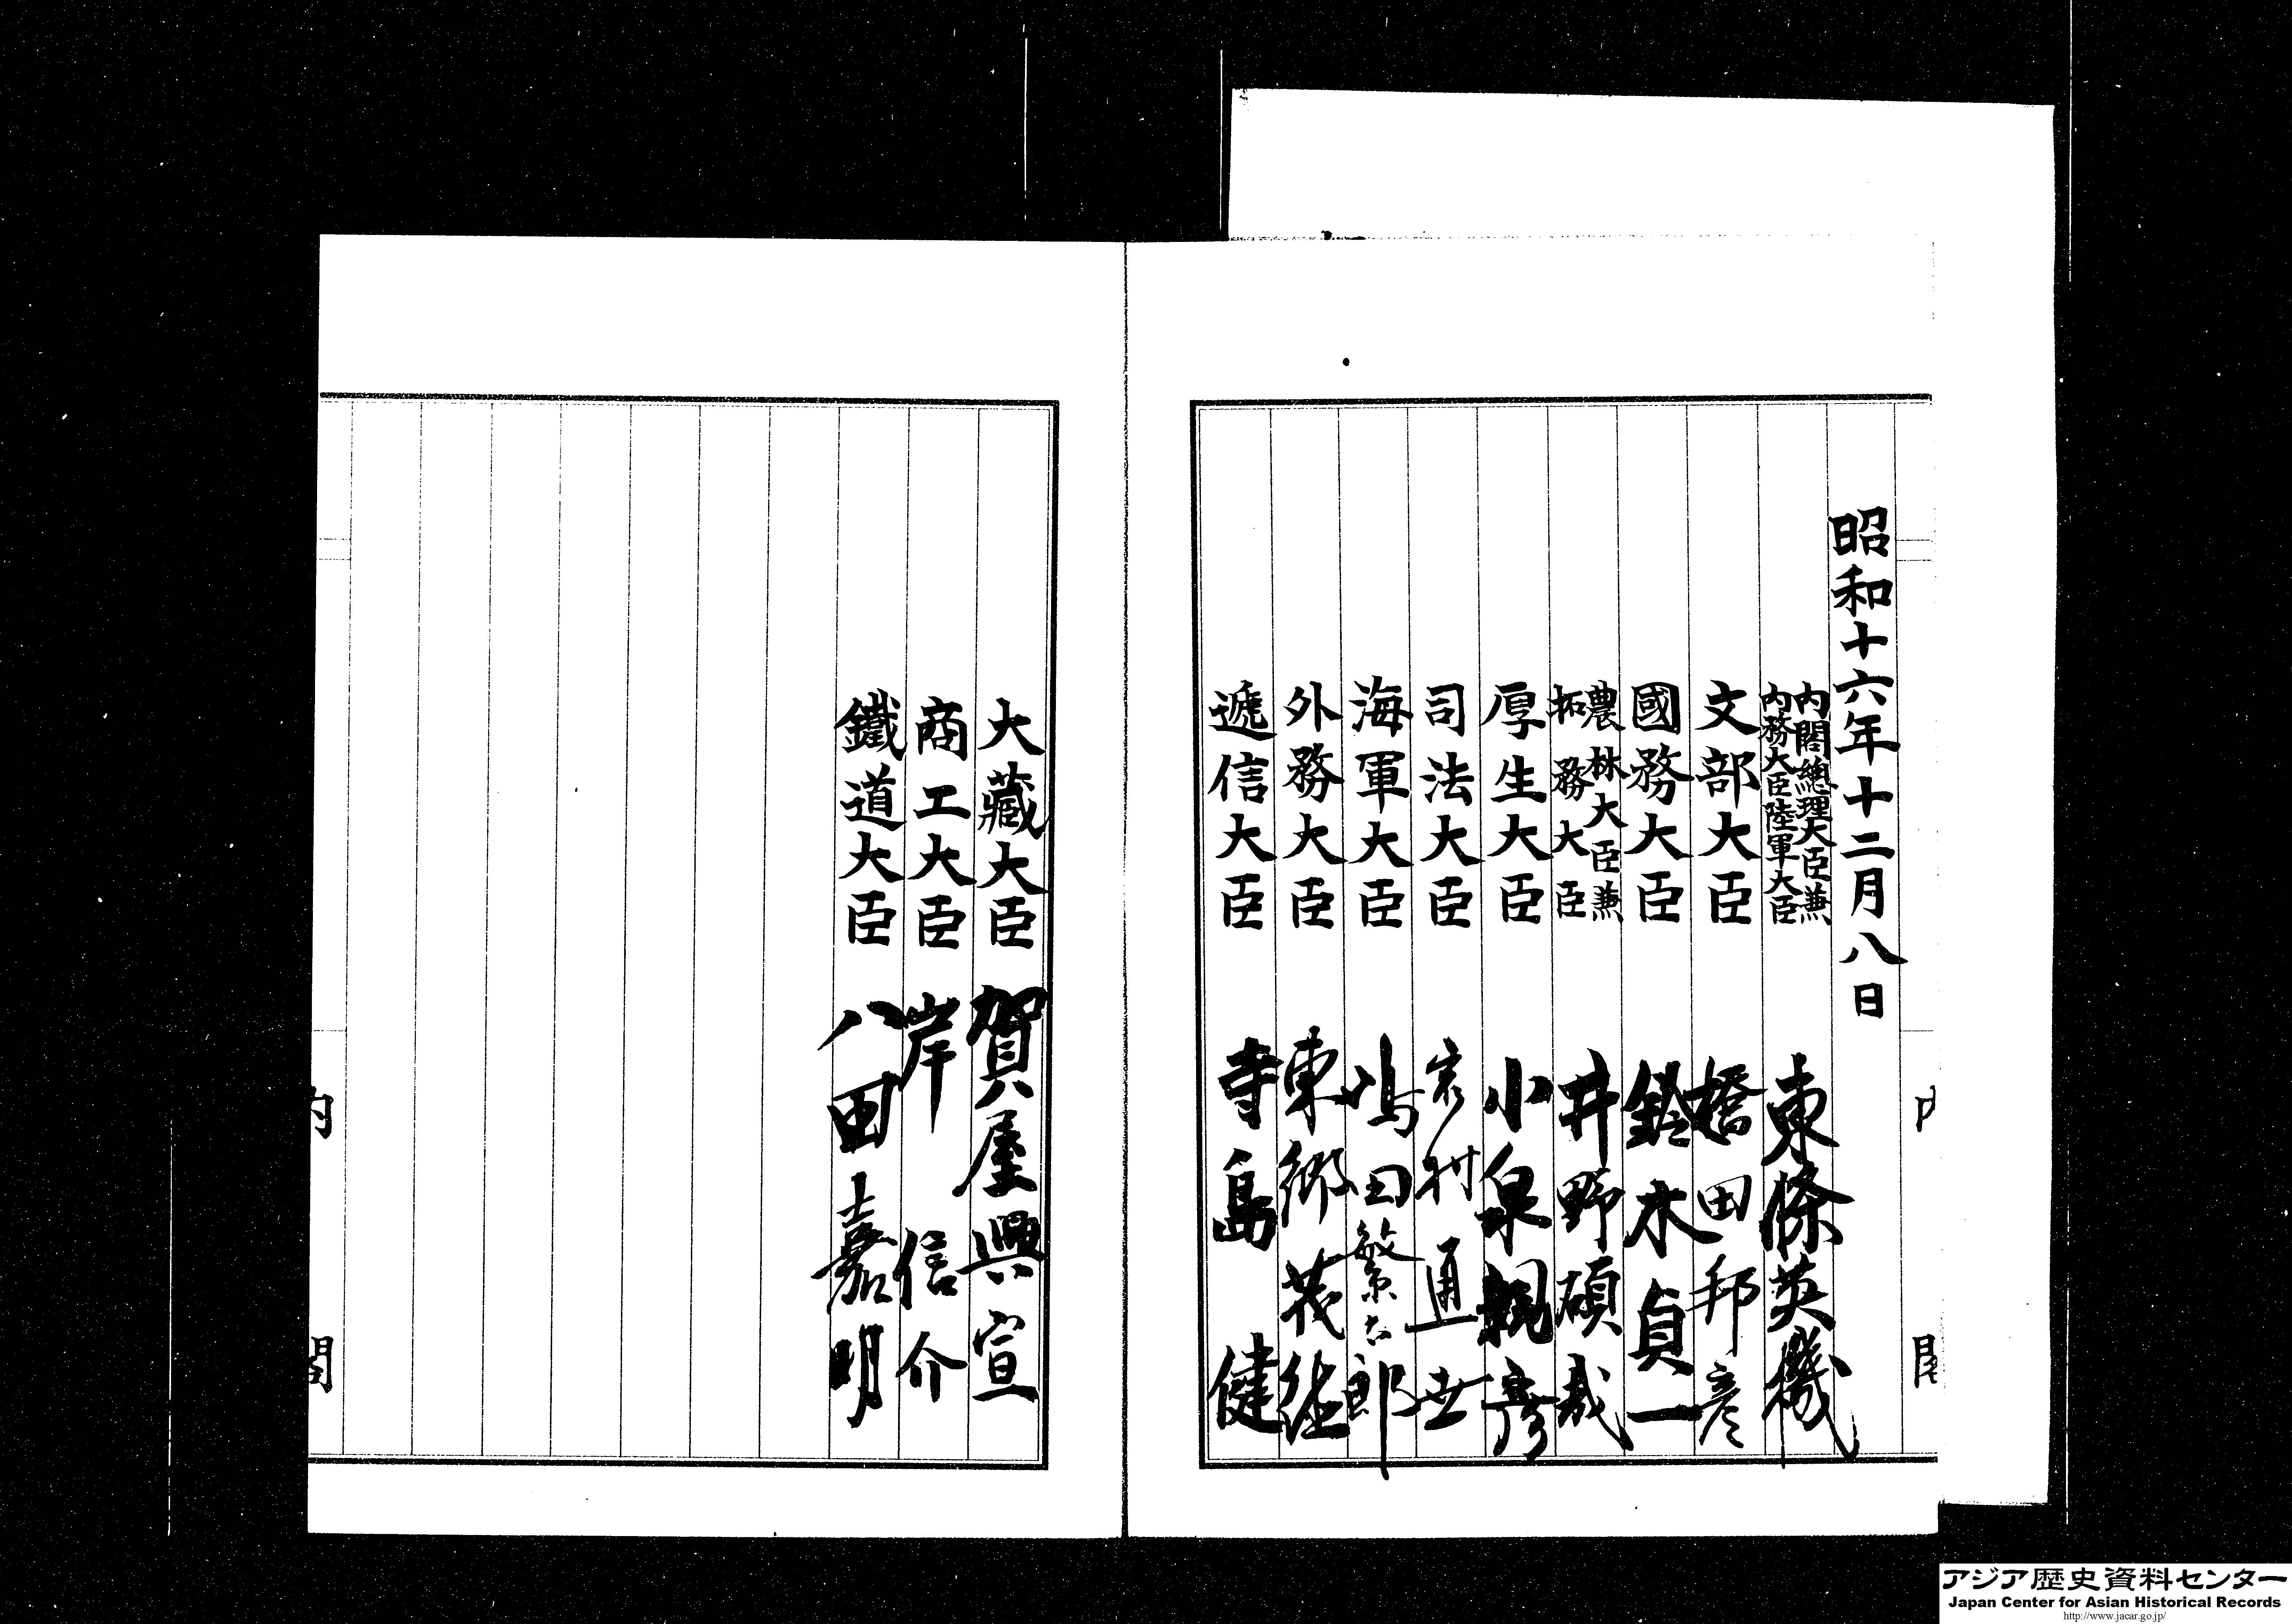 昭和十六年十二月八日
內閣總理大臣兼
內務大臣陸軍大臣 東條英機
文部大臣 橋田邦彦
國務大臣 鈴木貞一
農林大臣兼
拓務大臣 井野碩哉
厚生大臣 小泉親彦
司法大臣 岩村通世
海軍大臣 嶋田繁太郎
外務大臣 東鄕茂德
遞信大臣 寺島健
大藏大臣 賀屋興宣
商工大臣 岸信介
鐵道大臣 八田嘉明
內閣
アジア歴史資料センター
Japan Center for Asian Historical Records
http://www.jacar.go.jp/